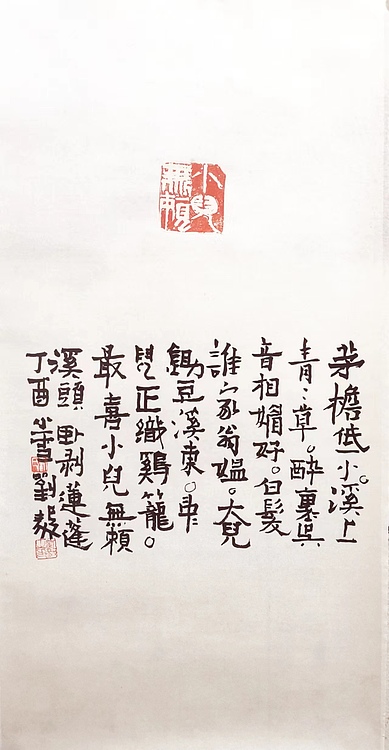 小兒
無賴
茅檐低小。溪上
青〻草。醉裏吳
音相媚好。白髮
誰家翁媼。大兒
鋤豆溪東。中
兒正織鷄籠。
最喜小兒無賴
溪頭卧剥蓮蓬
丁酉小雪劉